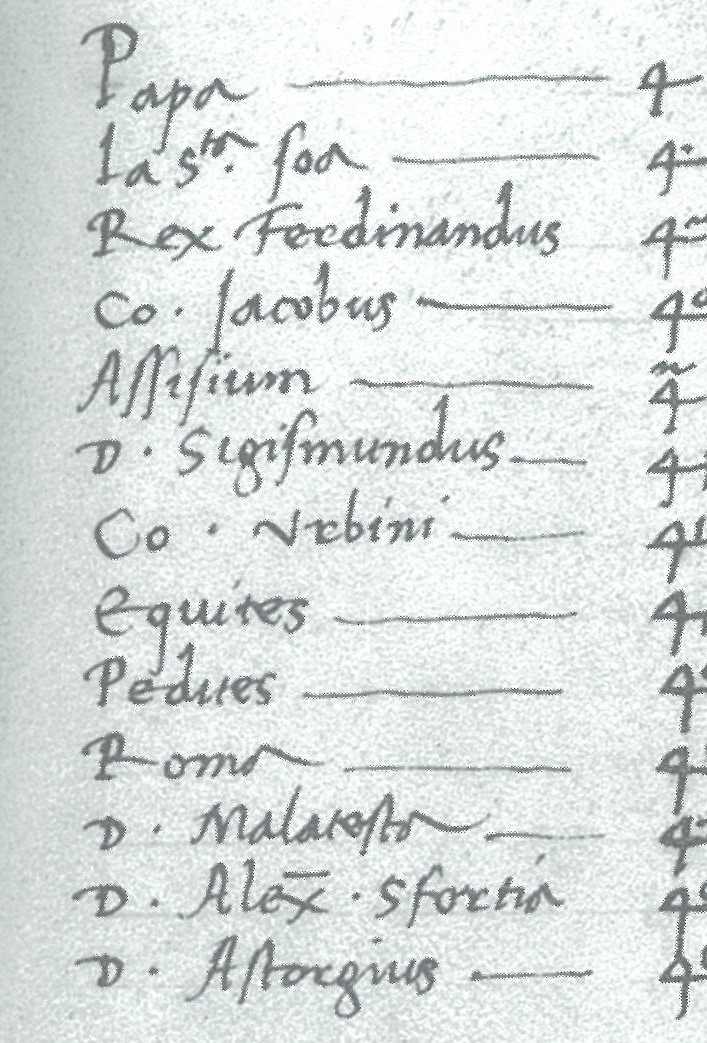 Papa —— 4
La Sta. soa —— 4
Rex Ferdinandus 4
Co. Jacobus —— 4
Assisium —— 4
D. Sigismundus — 4
Co. Urbini —— 4
equites —— 4
Pedites —— 4
Roma —— 4
D. Malatesta —— 4
D. Alex̄. Sfortia 4
D. Astorgius —— 4